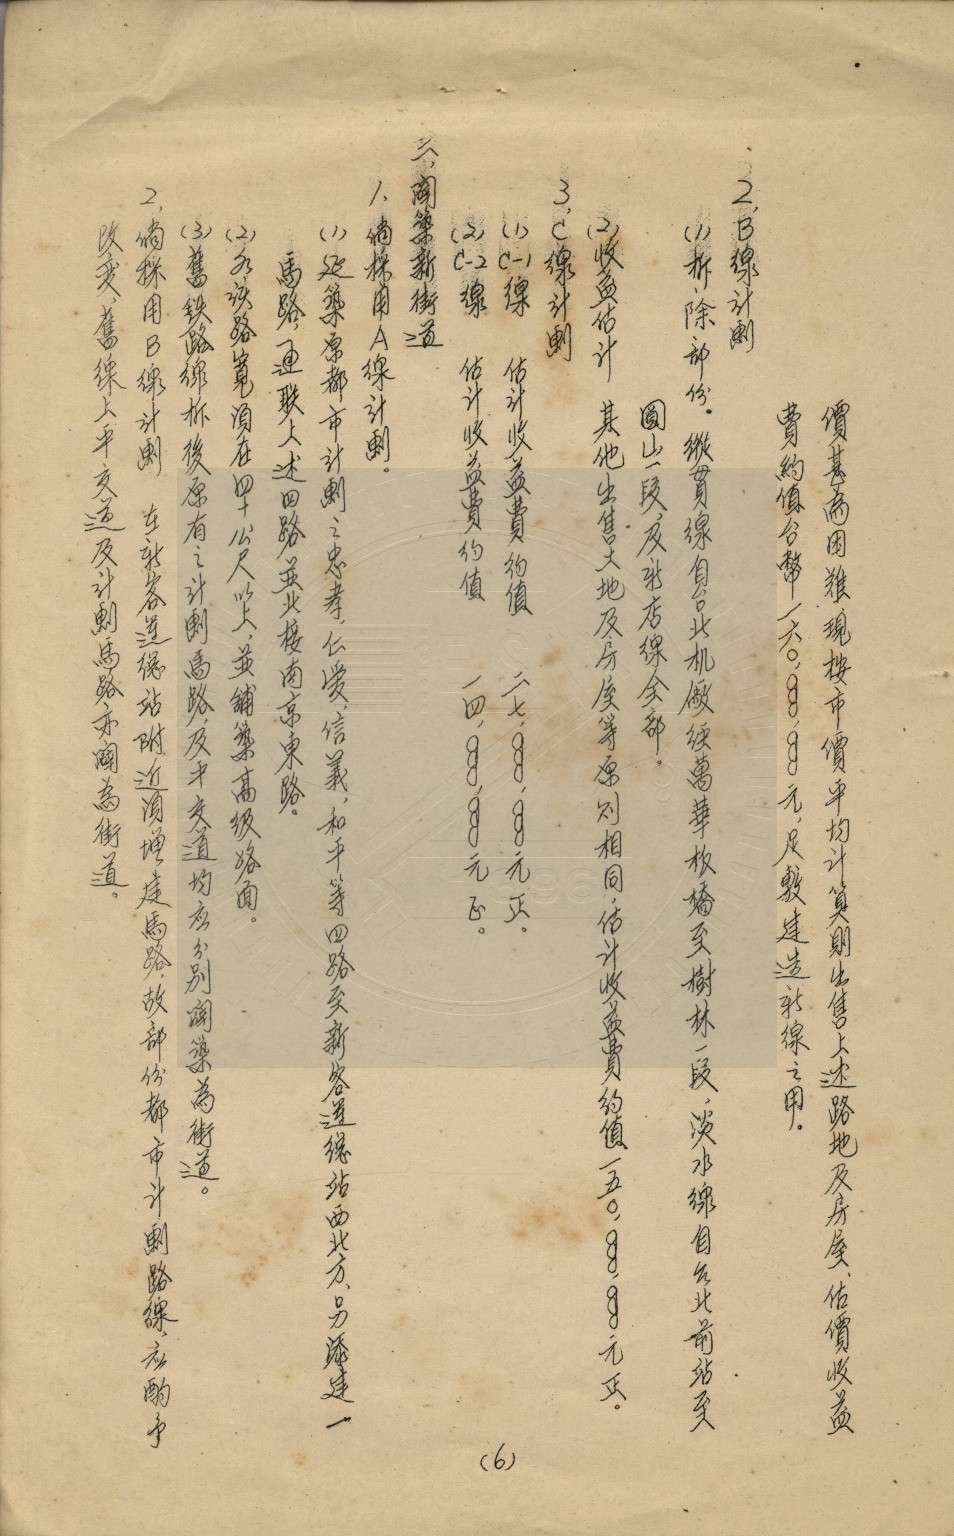 價甚為困難現按市價平均計算則出售上述路地及房屋、估價收益
費約值台幣一六〇,〇〇〇,〇〇〇元,足敷建造新線之用。
2、B線計劃
(1)拆除部份。縱貫線自台北机廠經萬華板橋至樹林一段,淡水線自台北前站至
圓山一段,及新店線全部。
(2)收益估計 其他出售土地及房屋等原則相同,估計收益費約值一五〇,〇〇〇,〇〇〇元正。
3、C線計劃
(1)C-1線 估計收益費約值 二七,〇〇〇,〇〇〇元正。
(2)C-2線 估計收益費約值 一四,〇〇〇,〇〇〇元正。
三、闢築新街道
1、倘採用A線計劃。
(1)延築原都市計劃之忠孝,仁愛,信義,和平等四路至新客運總站西北方、另添建一
馬路,通联上述四路並北接南京東路。
(2)各該路寬須在四十公尺以上,並鋪築高級路面。
(3)舊鉄路線拆後原有之計劃馬路,及平交道均應分別闢築為街道。
2、倘採用B線計劃 在新客運總站附近須增建馬路,故部份都市計劃路線,應酌予
改變、舊線上平交道及計劃馬路亦闢為街道。
(6)